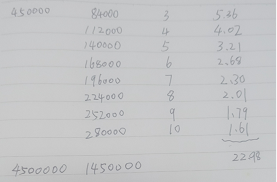 450000 84000 3 5.36
112000 4 4.02
140000 5 3.21
168000 6 2.68
196000 7 2.30
224000 8 2.01
252000 9 1.79
280000 10 1.61
22.98
4500000 1450000